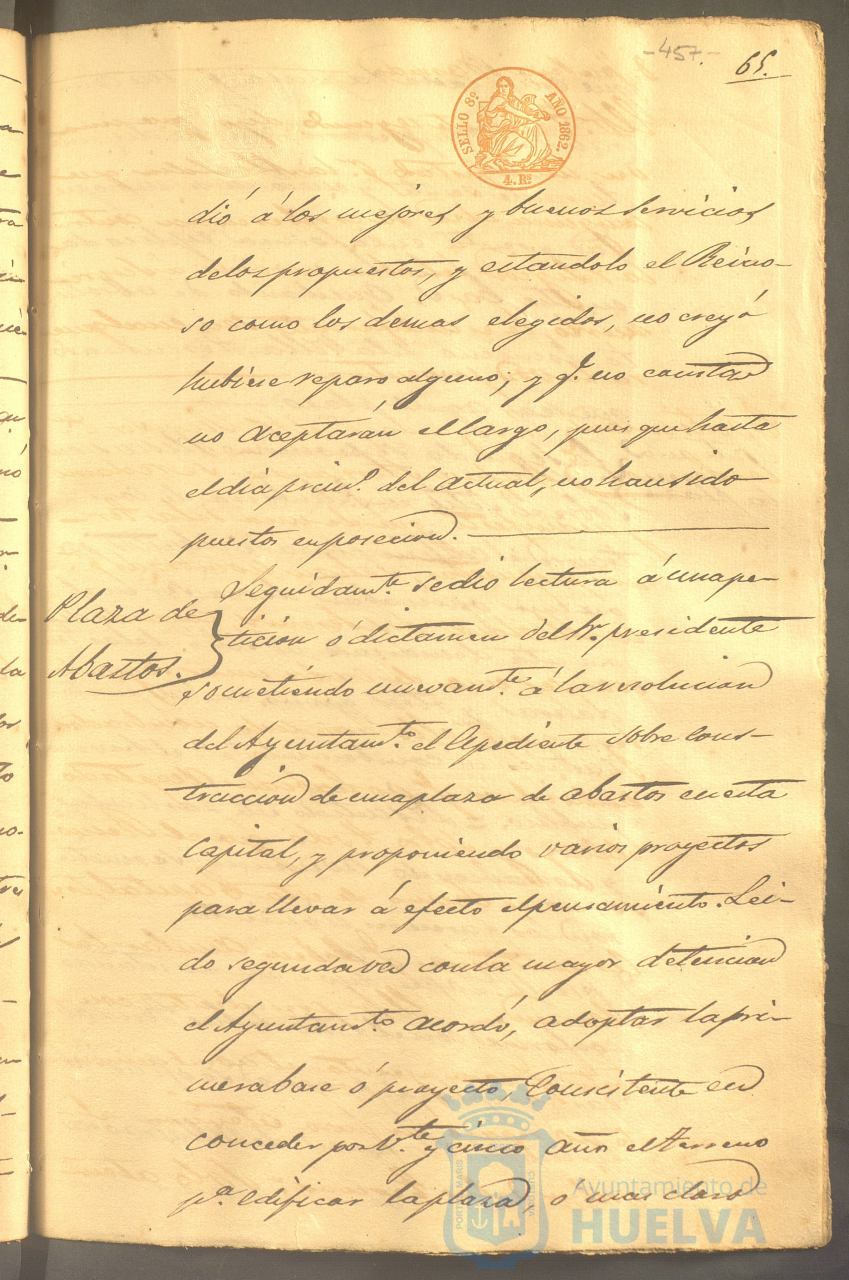 -457-
65.
SELLO 8º AÑO 1862.
4. Rs
dió á los mejores y buenos servicios
delos propuestos, y estandolo el Reino-
so como los demas elegidos, no creyó
hubiese reparo alguno; y q.e no constad
no aceptarán el largo, pues que hasta
el dia prim.º del actual, no han sido
puestos en posecion.
Plaza de
Abastos.
Seguidam.te se dio lectura á una pe-
ticion ó dictamen del Sr. presidente
sometiendo nuevam.te á la resolucion
del Ayuntam.to el Espediente sobre cons-
truccion de una plaza de abastos en esta
Capital, y proponiendo varios proyectos
para llevar á efecto el pensamiento. Lei-
do segunda vez con la mayor detencion
el Ayuntam.to acordó, adoptar la pri-
mera base ó proyecto, Concistente en
conceder por v.te y cinco años el terreno
p.a edificar la plaza, ó mas claro
PORTUS MARIS
Ayuntamiento de
HUELVA